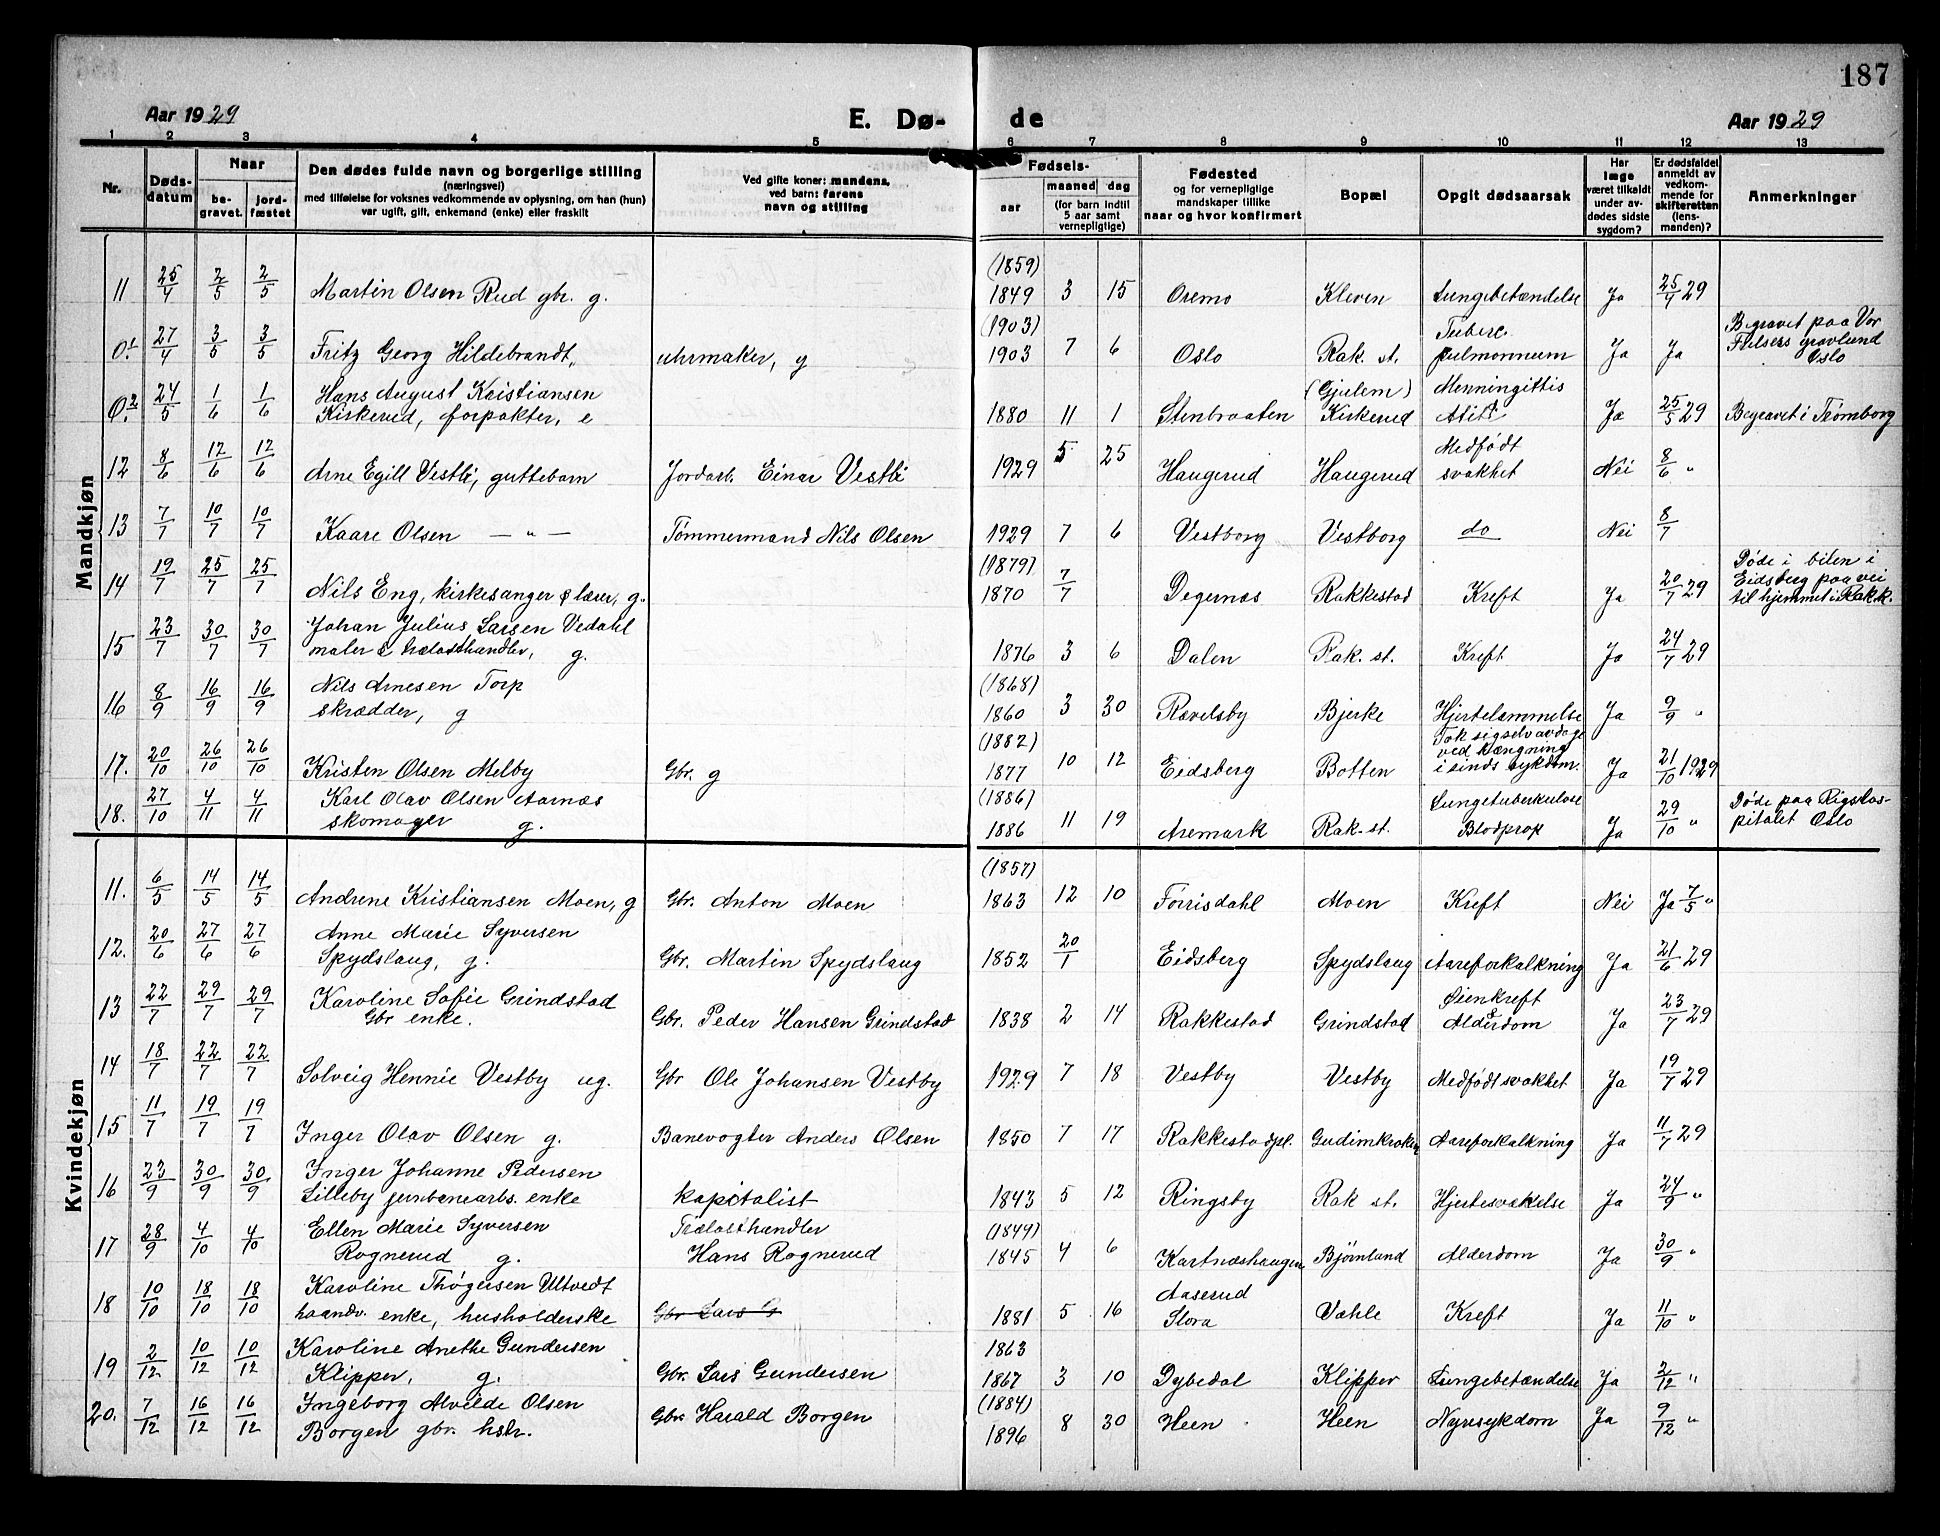 187
Aar 1929
E. Dø-
de
Aar 1929
1 2 3 4 5 6 7 8 9 10 11 12 13
Nr.
Dødsdatum
Naar
begravet.
jordfæstet
Den dødes fulde navn og borgerlige stilling
(næringsvei)
med tilføielse for voksnes vedkommende av oplysning, om han (hun)
var ugift, gift, enkemand (enke) eller fraskilt
Ved gifte koner: mandens,
ved barn: farens
navn og stilling
Fødsels-
aar
maaned dag
(for barn indtil
5 aar samt
vernepligtige)
Fødested
og for vernepligtige
mandskaper tillike
naar og hvor konfirmert
Bopæl
Opgit dødsaarsak
Har
læge
været tilkaldt
under av-
dødes sidste
sygdom?
Er dødsfaldet
anmeldt av
vedkom-
mende for
skifteretten
(lens-
manden)?
Anmerkninger
Mandkjøn
11 25/4 2/5 2/5 Martin Olsen Rud gbr. g. (1859) 1849 3 15 Oremo Kleven Lungebetændelse Ja 25/4 29
0.1 27/4 3/5 3/5 Fritz Georg Hildebrandt, uhrmaker, g (1903) 1903 7 6 Oslo Rak. st. Tuberc. pulmonnum Ja Ja Begravet paa Vor Frelsers gravlund Oslo
0.2 24/5 1/6 1/6 Hans August Kristiansen Kirkerud, forpakter, e 1880 11 1 Stenbraaten (Gjulem) Kirkerud Menningittis Ja 25/5 29 Begravet i Trømborg
12 8/6 12/6 12/6 Arne Egill Vestbi, guttebarn Jordarb. Einar Vestbi 1929 5 25 Haugerud Haugerud Medfødt svakhet Nei 8/6 "
13 7/7 10/7 10/7 Kaare Olsen — " — Tømmermand Nils Olsen 1929 7 6 Vestborg Vestborg do Nei 8/7
14 19/7 25/7 25/7 Nils Eng, kirkesanger & lærer, g. (1879) 1870 7/7 Degernes Rakkestad Kreft Ja 20/7 29 Døde i bilen i Eidsberg paa vei til hjemmet i Rakk.
15 23/7 30/7 30/7 Johan Julius Larsen Vedahl maler & trælasthandler, g. 1876 3 6 Dalen Rak. st. Kreft Ja 24/7 29
16 8/9 16/9 16/9 Nils Arnesen Torp skrædder, g (1868) 1860 3 30 Ravelsby Bjerke Hjertelammelse Ja 9/9 "
17. 20/10 26/10 26/10 Kristen Olsen Melby Gbr. g (1882) 1877 10 12 Eidsberg Botten Tok sig selv av dage ved hængning i sinds sykdom. Ja 21/10 1929
18. 27/10 4/11 4/11 Karl Olav Olsen Aarnæs skomager g. (1886) 1886 11 19 Aremark Rak. st. Lungetuberkulose Blodprop Ja 29/10 " Døde paa Rigshospitalet Oslo
Kvindekjøn
11. 6/5 14/5 14/5 Andrene Kristiansen Moen, g Gbr. Anton Moen (1857) 1863 12 10 Førrisdahl Moen Kreft Nei Ja 7/5 "
12. 20/6 27/6 27/6 Anne Marie Syversen Spydslaug, g. Gbr. Martin Spydslaug 1852 20/1 Eidsberg Spydslaug Aareforkalkning Ja 21/6 29
13 22/7 29/7 29/7 Karoline Sofie Grindstad Gbr enke. Gbr. Peder Hansen Grindstad 1838 2 14 Rakkestad Grindstad Øienkreft & Alderdom Ja 23/7 29
14 18/7 22/7 22/7 Solveig Hennie Vestby ug. Gbr Ole Johansen Vestby 1929 7 18 Vestby Vestby Medfødt svakhet Ja 19/7 29
15 11/7 19/7 19/7 Inger Olav Olsen g. Banevogter Anders Olsen 1850 7 17 Rakkestadpl. Gudimkroken Aareforkalkning Ja 11/7 29
16 23/9 30/9 30/9 Inger Johanne Pedersen Lilleby jernbanearbs. enke kapitalist 1843 5 12 Ringsby Rak st. Hjertesvækelse Ja 24/9 "
17 28/9 4/10 4/10 Ellen Marie Syversen Rognerud g. Trælasthandler Hans Rognerud (1849) 1845 4 6 Kartnæshaugen Bjørnland Alderdom Ja 30/9 "
18 10/10 18/10 18/10 Karoline Thøgersen Ultvedt haandv. enke, husholderske Gbr Lars G 1881 5 16 Aaserud Stora Væhle Kreft Ja 11/10 "
19 2/12 10/12 10/12 Karoline Anethe Gundersen Klipper, g. Gbr. Lars Gundersen 1863 1867 3 10 Dybedal Klipper Lungebetændelse Ja 2/12 "
20. 7/12 16/12 16/12 Ingeborg Alvilde Olsen Borgen gbr. hstr. Gbr Harald Borgen (1884) 1896 8 30 Heen Heen Nyresykdom Ja 9/12 "